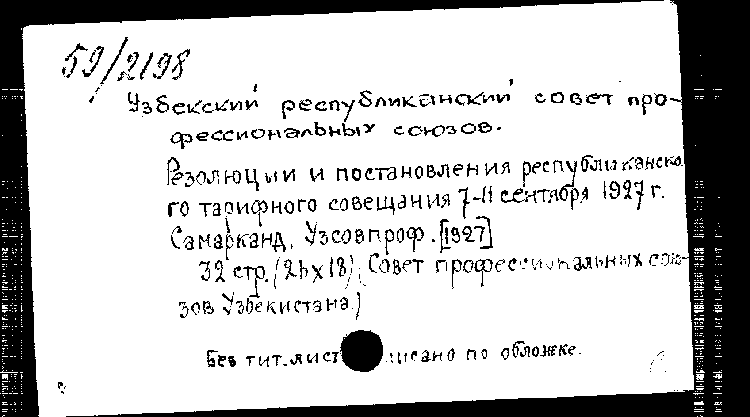 59/2198
Узбекский республиканский совет про-
фессиональных союзов.
Резолюции и постановления республиканско
го тарифного совещания 7-11 сентября 1927 г.
Самарканд, Узсовпроф. [1927]
32 стр. (26х18). (Совет профессиональных сою-
зов Узбекистана.)
Без тит. лист писано по обложке.